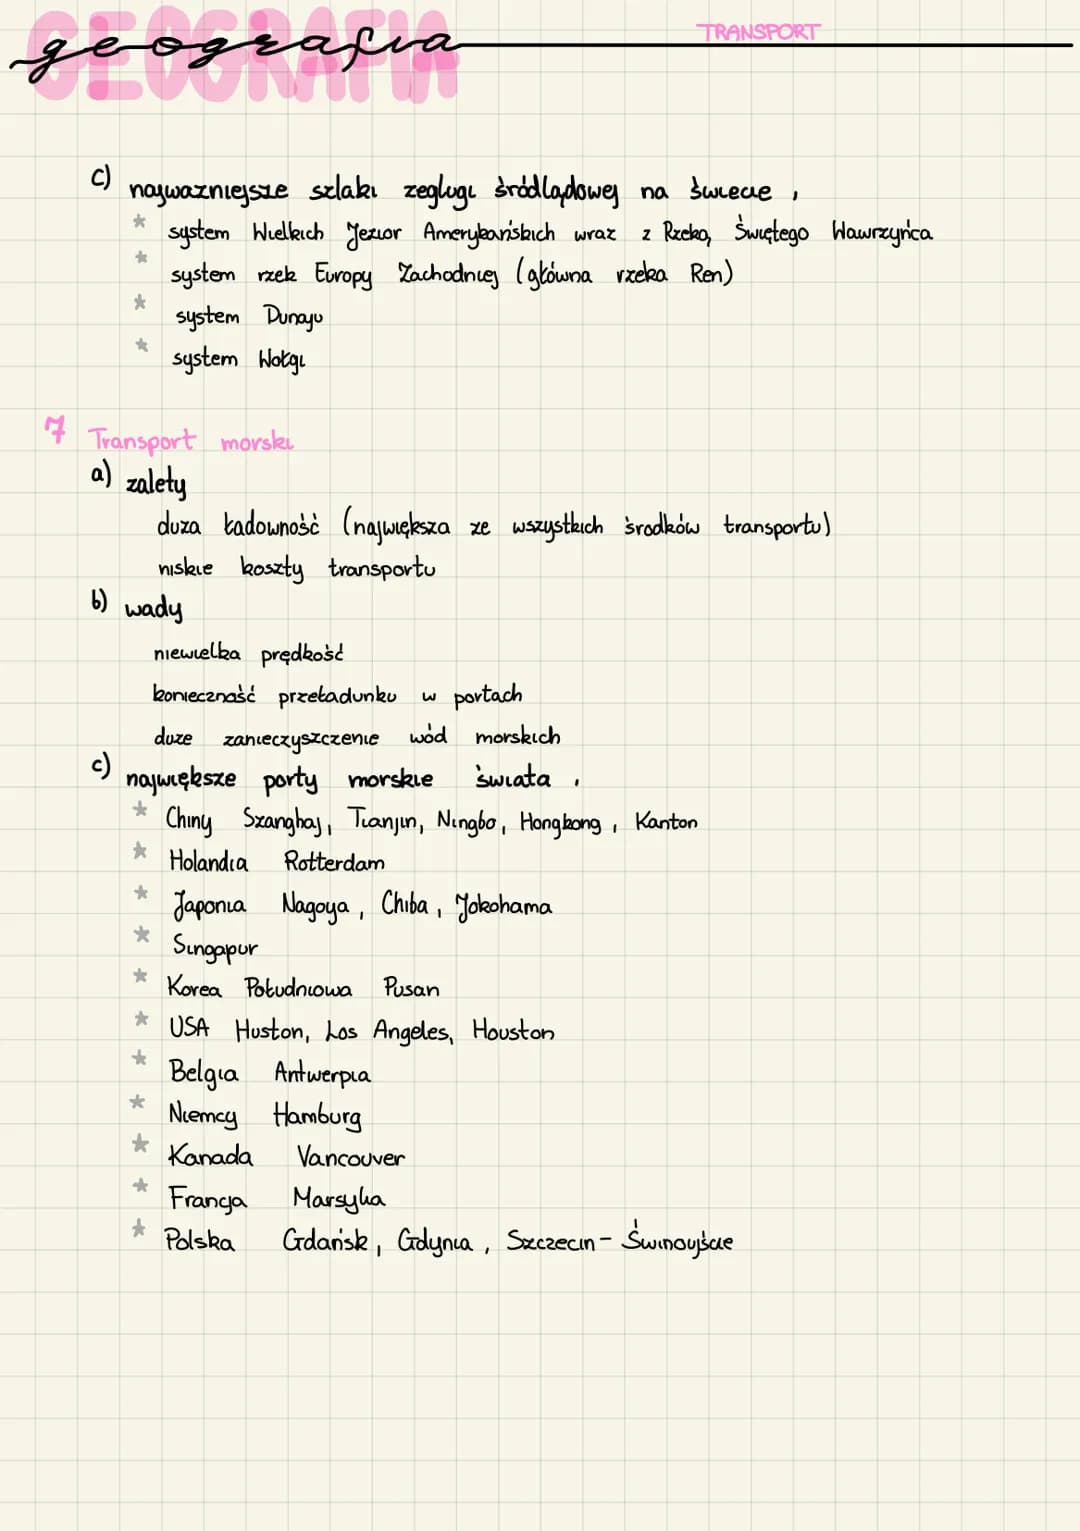 GEOGRAFIA
geografia
TRANSPORT
c) najważniejsze szlaki żeglugi śródlądowej na świecie,
* system Wielkich Jezior Amerykańskich wraz z Rzeką Świętego Wawrzyńca
* system rzek Europy Zachodniej (główna rzeka Ren)
* system Dunaju
* system Wołgi
7 Transport morski
a) zalety
duża ładowność (największa ze wszystkich środków transportu)
niskie koszty transportu
b) wady
niewielka prędkość
konieczność przeładunku w portach
duże zanieczyszczenie wód morskich
c) największe porty morskie świata,
* Chiny Szanghaj, Tianjin, Ningbo, Hongkong, Kanton
* Holandia Rotterdam
* Japonia Nagoya, Chiba, Jokohama
* Singapur
* Korea Południowa Pusan
* USA Huston, Los Angeles, Houston
* Belgia Antwerpia
* Niemcy Hamburg
* Kanada Vancouver
* Francja Marsylia
* Polska Gdańsk, Gdynia, Szczecin - Świnoujście